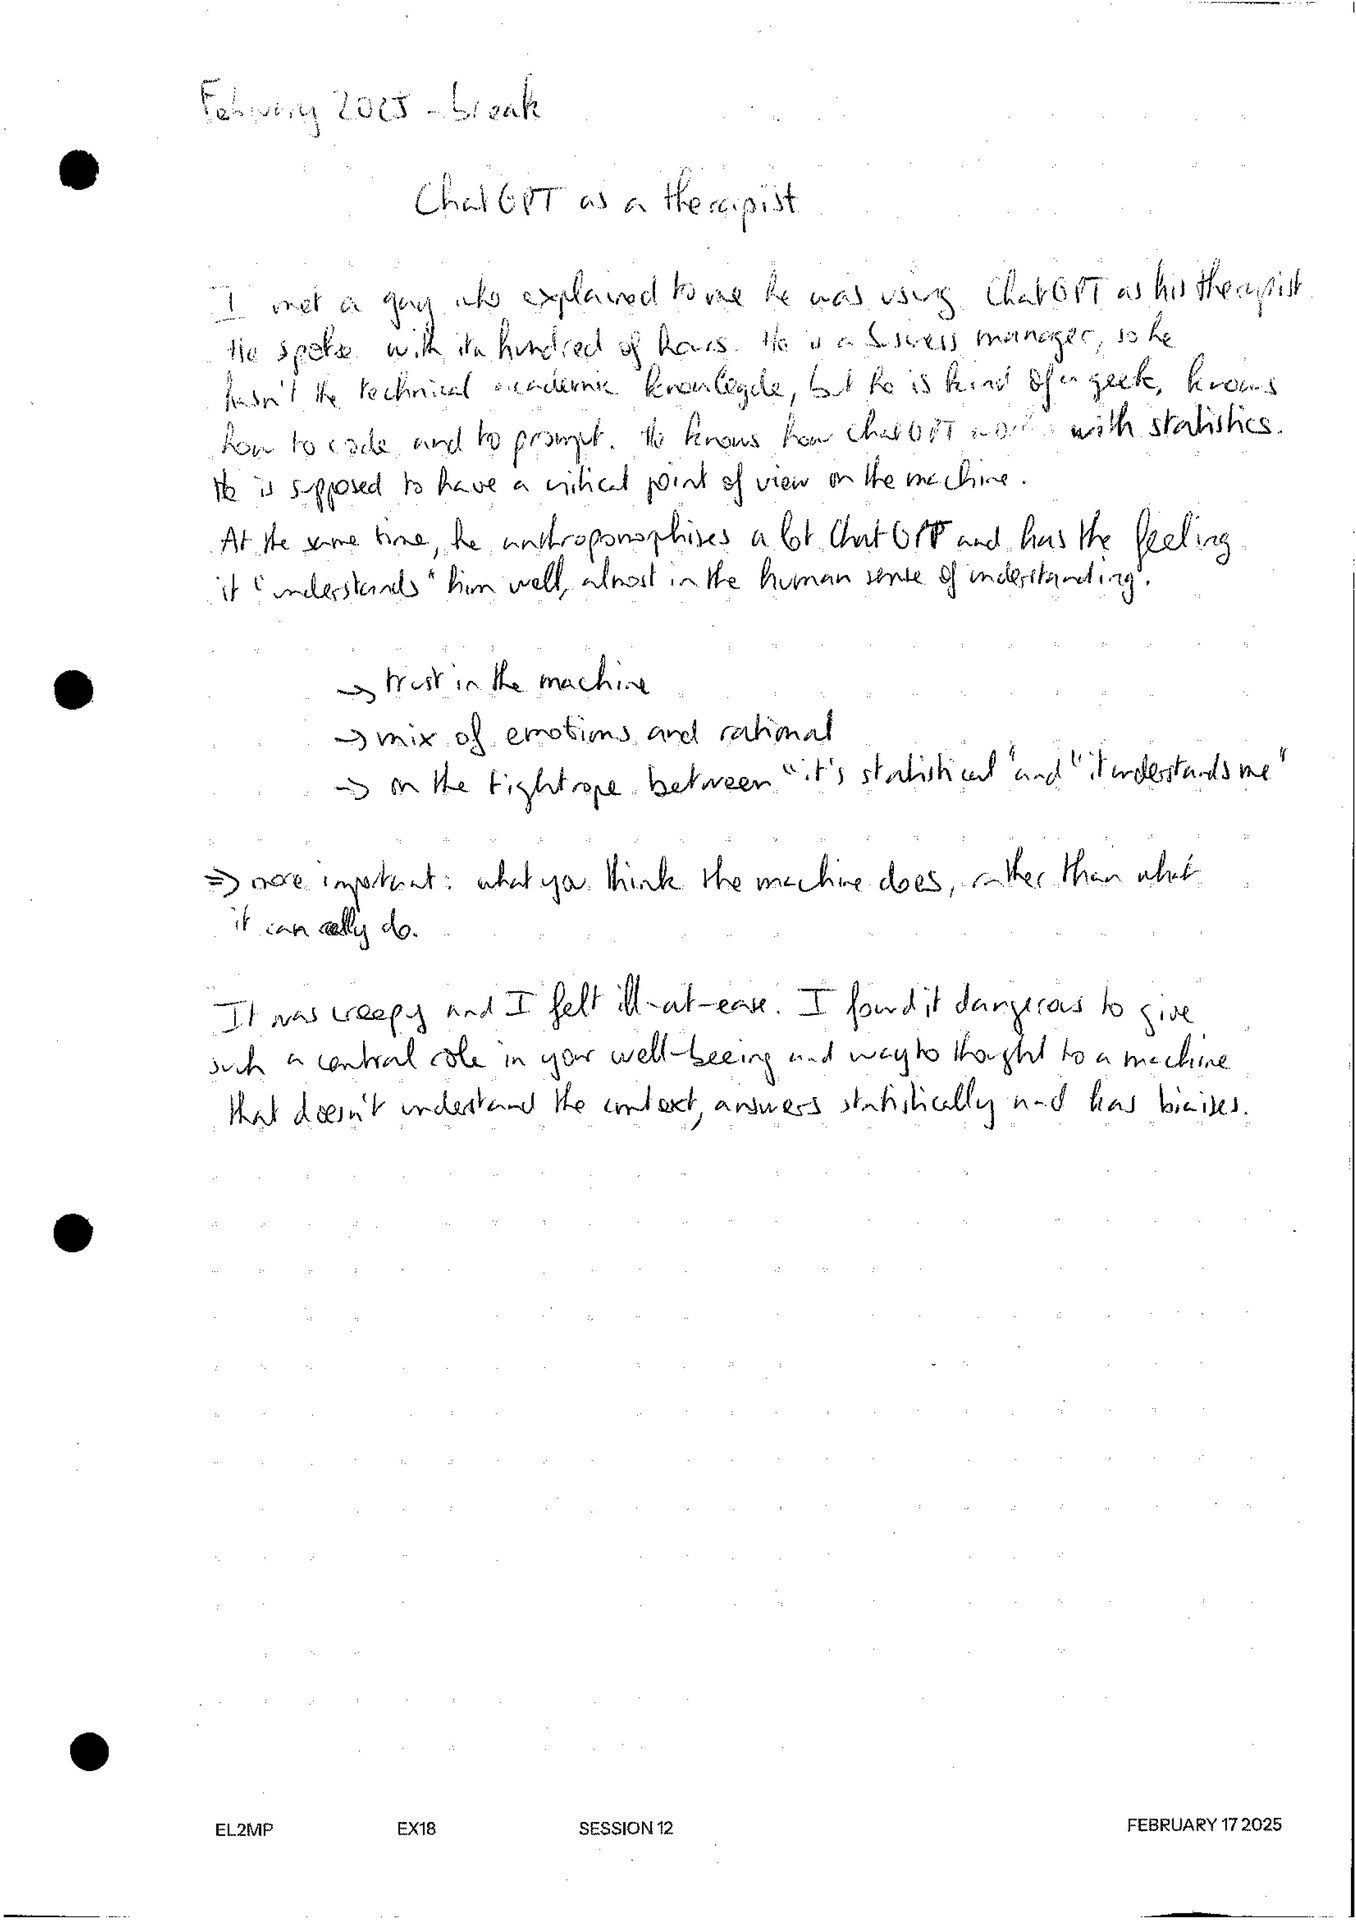 February 2025 - break
ChatGPT as a therapist
I met a guy who explained to me he was using ChatGPT as his therapist.
He spoke with it hundred of hours. He is a business manager, so he
hasn't the technical academic knowlegde, but he is kind of a geek, knows
how to code and to prompt. He knows how ChatGPT works with statistics.
He is supposed to have a critical point of view on the machine.
At the same time, he anthropomorphises a lot ChatGPT and has the feeling
it "understands" him well, almost in the human sense of understanding.
→ trust in the machine
→ mix of emotions and rational
→ on the tightrope between "it's statistical" and "it understands me"
⇒ more important: what you think the machine does, rather than what
it can really do.
It was creepy and I felt ill-at-ease. I found it dangerous to give
such a central role in your well-beeing and way to thought to a machine
that doesn't understand the context, answers statistically and has biaises.
EL2MP EX18 SESSION 12 FEBRUARY 17 2025